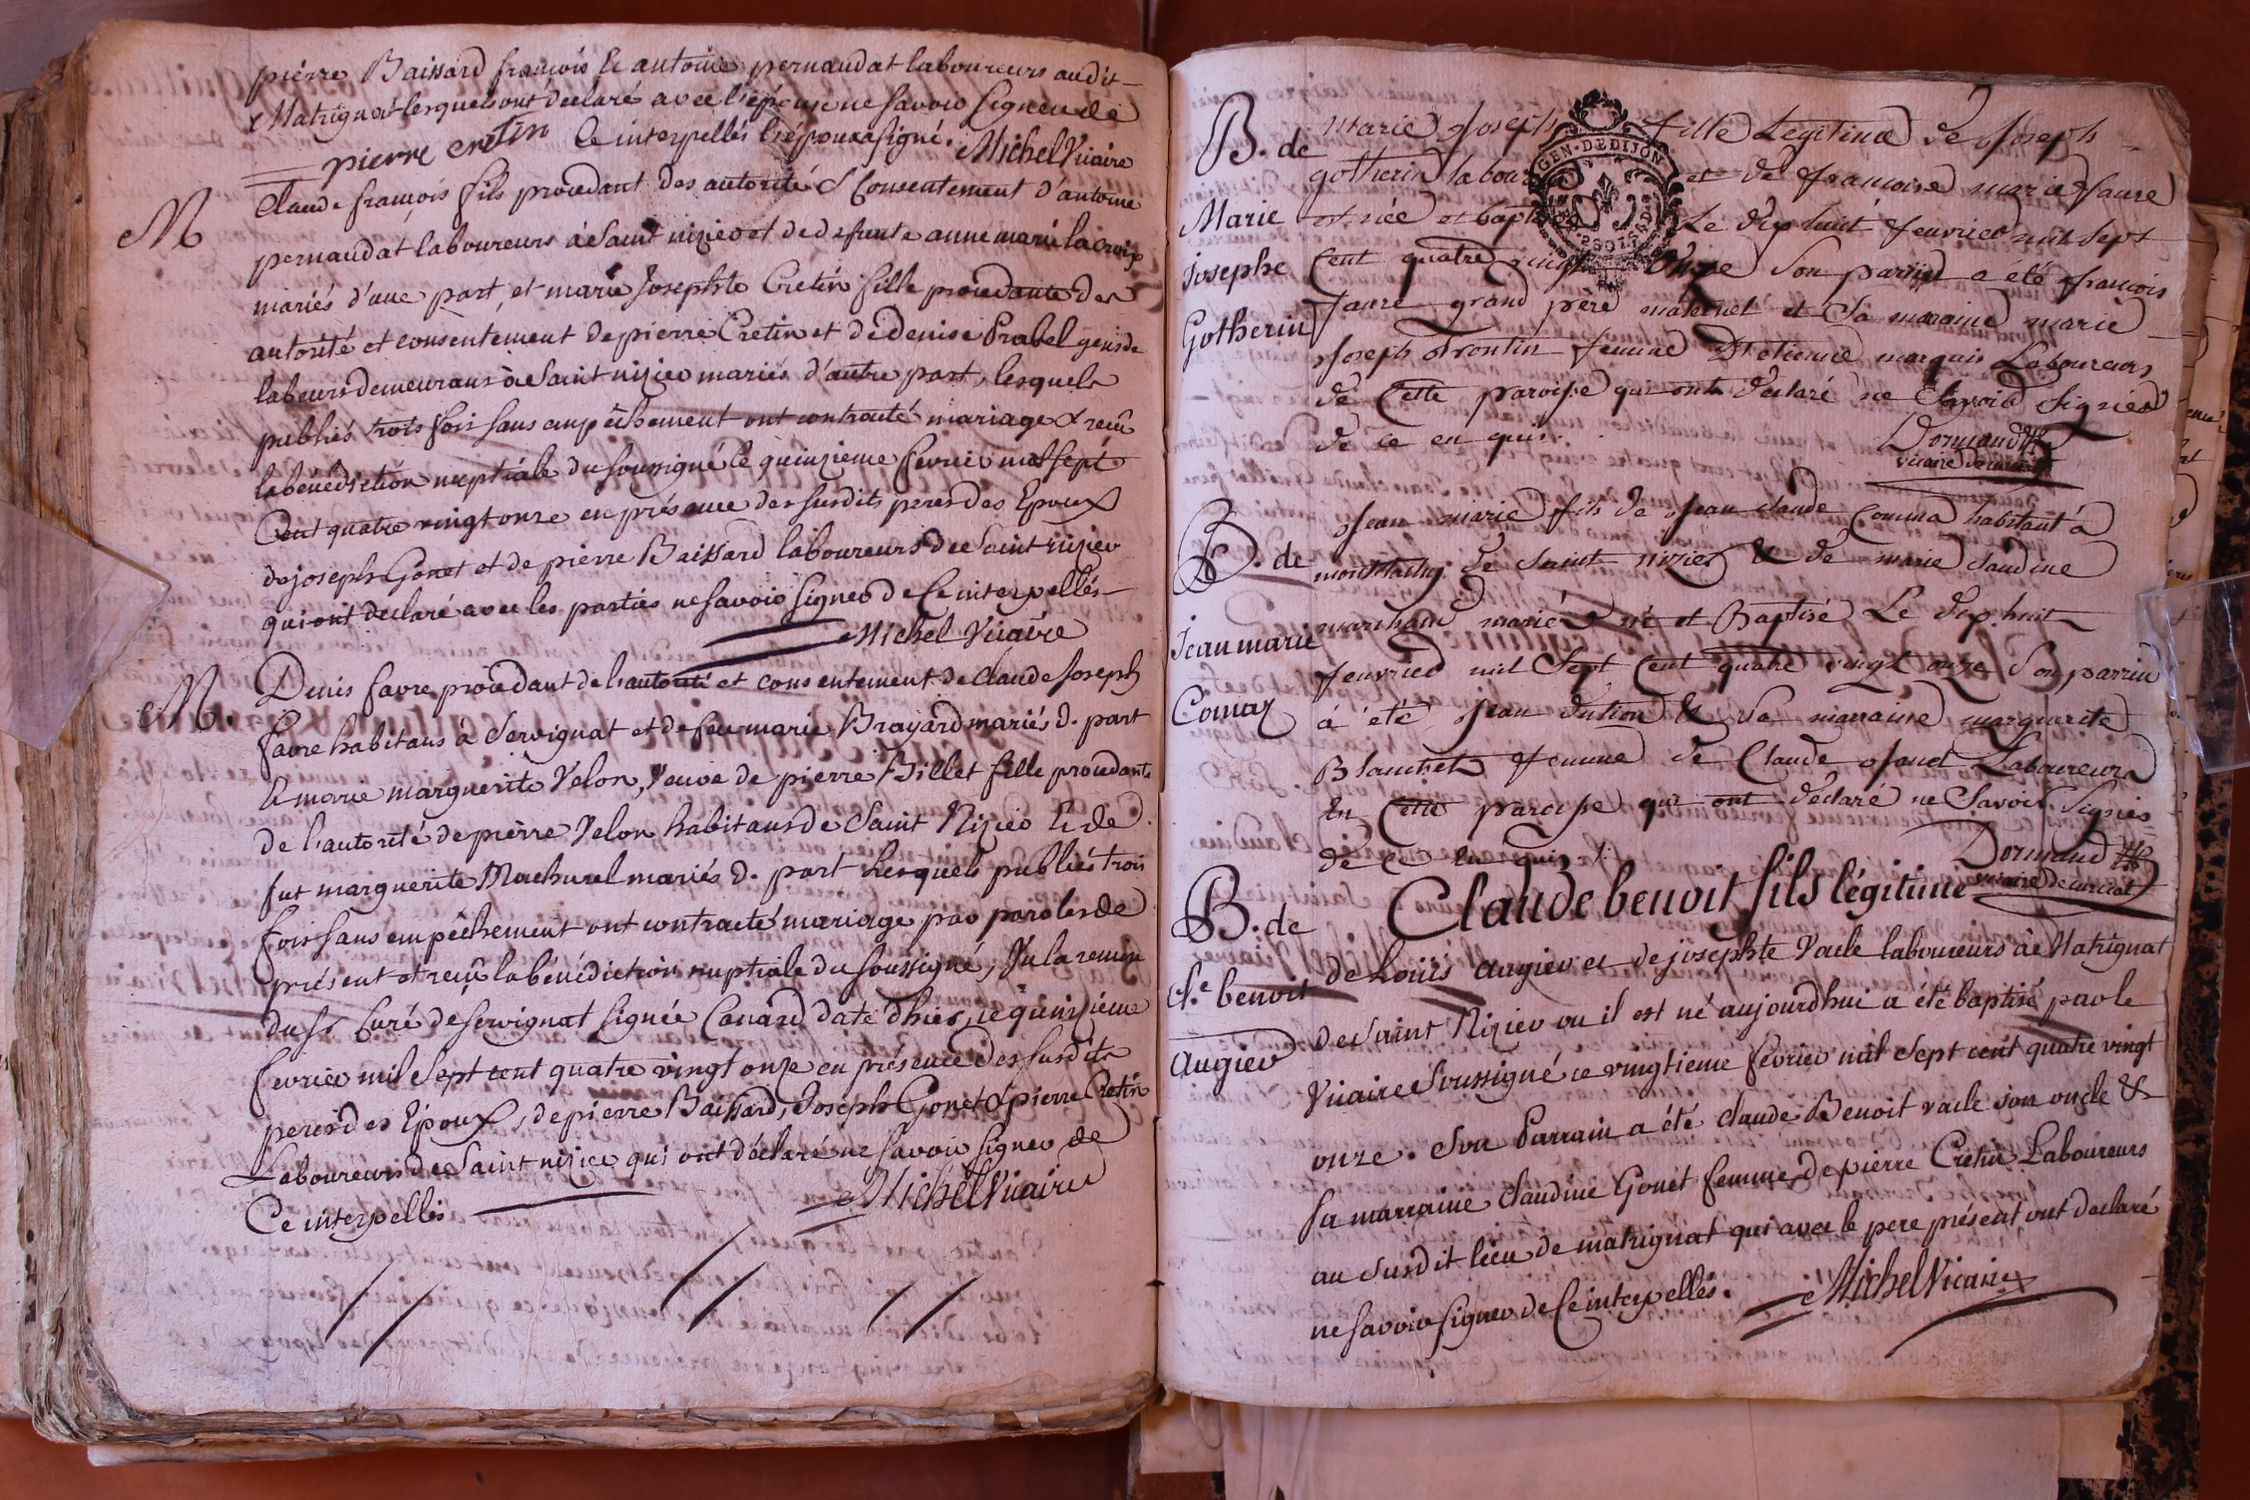 pierre Baissard françois & antoine pernaudat laboureurs audit
Matrignat lesquels ont declaré avec l'épouse ne savoir signer de
pierre cretin Ce interpellés l'époux a signé. Michel Vicaire
M
Claude françois fils procedant des autorité & Consentement d'antoine
pernaudat laboureurs à Saint nizier et de defunte anne marie lacroix
mariés d'une part, et marie Josephte Cretin fille procedante des
autorité et consentement de pierre Cretin et de denise Prabel gens de
labeurs demeurans à Saint nizier mariés d'autre part, lesquels
publiés trois fois sans empêchement ont contracté mariage & reçu
la bénédiction nuptiale du soussigné le quinzieme fevrier mil sept
Cent quatre vingt onze en présence des susdits peres des Epoux
de joseph Gonet et de pierre Baissard laboureurs de Saint nizier
qui ont declaré avec les parties ne savoir signer de Ce interpellés
Michel Vicaire
M.
Denis favre procedant de l'autorité et consentement de Claude Joseph
favre habitans à Servignat et de feu marie Brayard mariés d. part
& marie marguerite Velon, Veuve de pierre Billet fille procedante
de l'autorité de pierre Velon habitans de Saint Nizier & de
fut marguerite Machurel mariés d. part lesquels publiés trois
fois sans empêchement ont contracté mariage par paroles de
présent et reçu la bénédiction nuptiale du soussigné, Vu la remise
du Sr Curé de Servignat signée Canard date d'hier, ce quinzième
fevrier mil Sept cent quatre vingt onze en présence des susdits
peres des Epoux, de pierre Baissard, Joseph Gonet & pierre Cretin
Laboureurs de Saint nizier qui ont déclaré ne savoir signer de
Ce interpellés Michel Vicaire
B. de
Marie
Josephe
Gotherin
Marie Joseph fille Légitime de Joseph
gotherin labour et de françoise marie faure
est née et baptisée Le dix huit feuvrier mil sept
GEN. DE DIJON
Cent quatre vingt Onze Son parrin a été françois
faure grand père maternel et Sa maraine marie
Joseph trontin femme D'etienne marquis Laboureurs
de Cette paroisse qui ont déclaré ne Savoir signer
de ce en quis. Dormand
vicaire de curciat
B. de
Jean marie
Comaz
Jean marie fils de Jean claude Comma habitant à
de Saint nizier & de marie claudine
marchand mariés né et Baptisé Le dix huit
feuvrier mil Sept Cent quatre vingt onze Son parrin
à été Jean dution & Sa marraine marguerite
Blanchet femme de Claude Janet Laboureurs
En Cette paroisse qui ont déclaré ne Savoir signer
de Ce En quis. Dormand
vicaire de curciat
B. de
Cl.e benoit
Augier
Claude benoit fils légitime
de Louis Augier et de josephte Vacle laboureurs à Matrignat
de Saint Nizier ou il est né aujourd'hui a été baptisé par le
Vicaire Soussigné ce vingtieme fevrier mil sept cent quatre vingt
onze. Son Parrain a été claude Benoit vacle son oncle &
sa marraine claudine Gonet femme de pierre Cretin Laboureurs
au susdit lieu de matrignat qui avec le pere présent ont declaré
ne savoir signer de Ce interpellés. Michel Vicaire